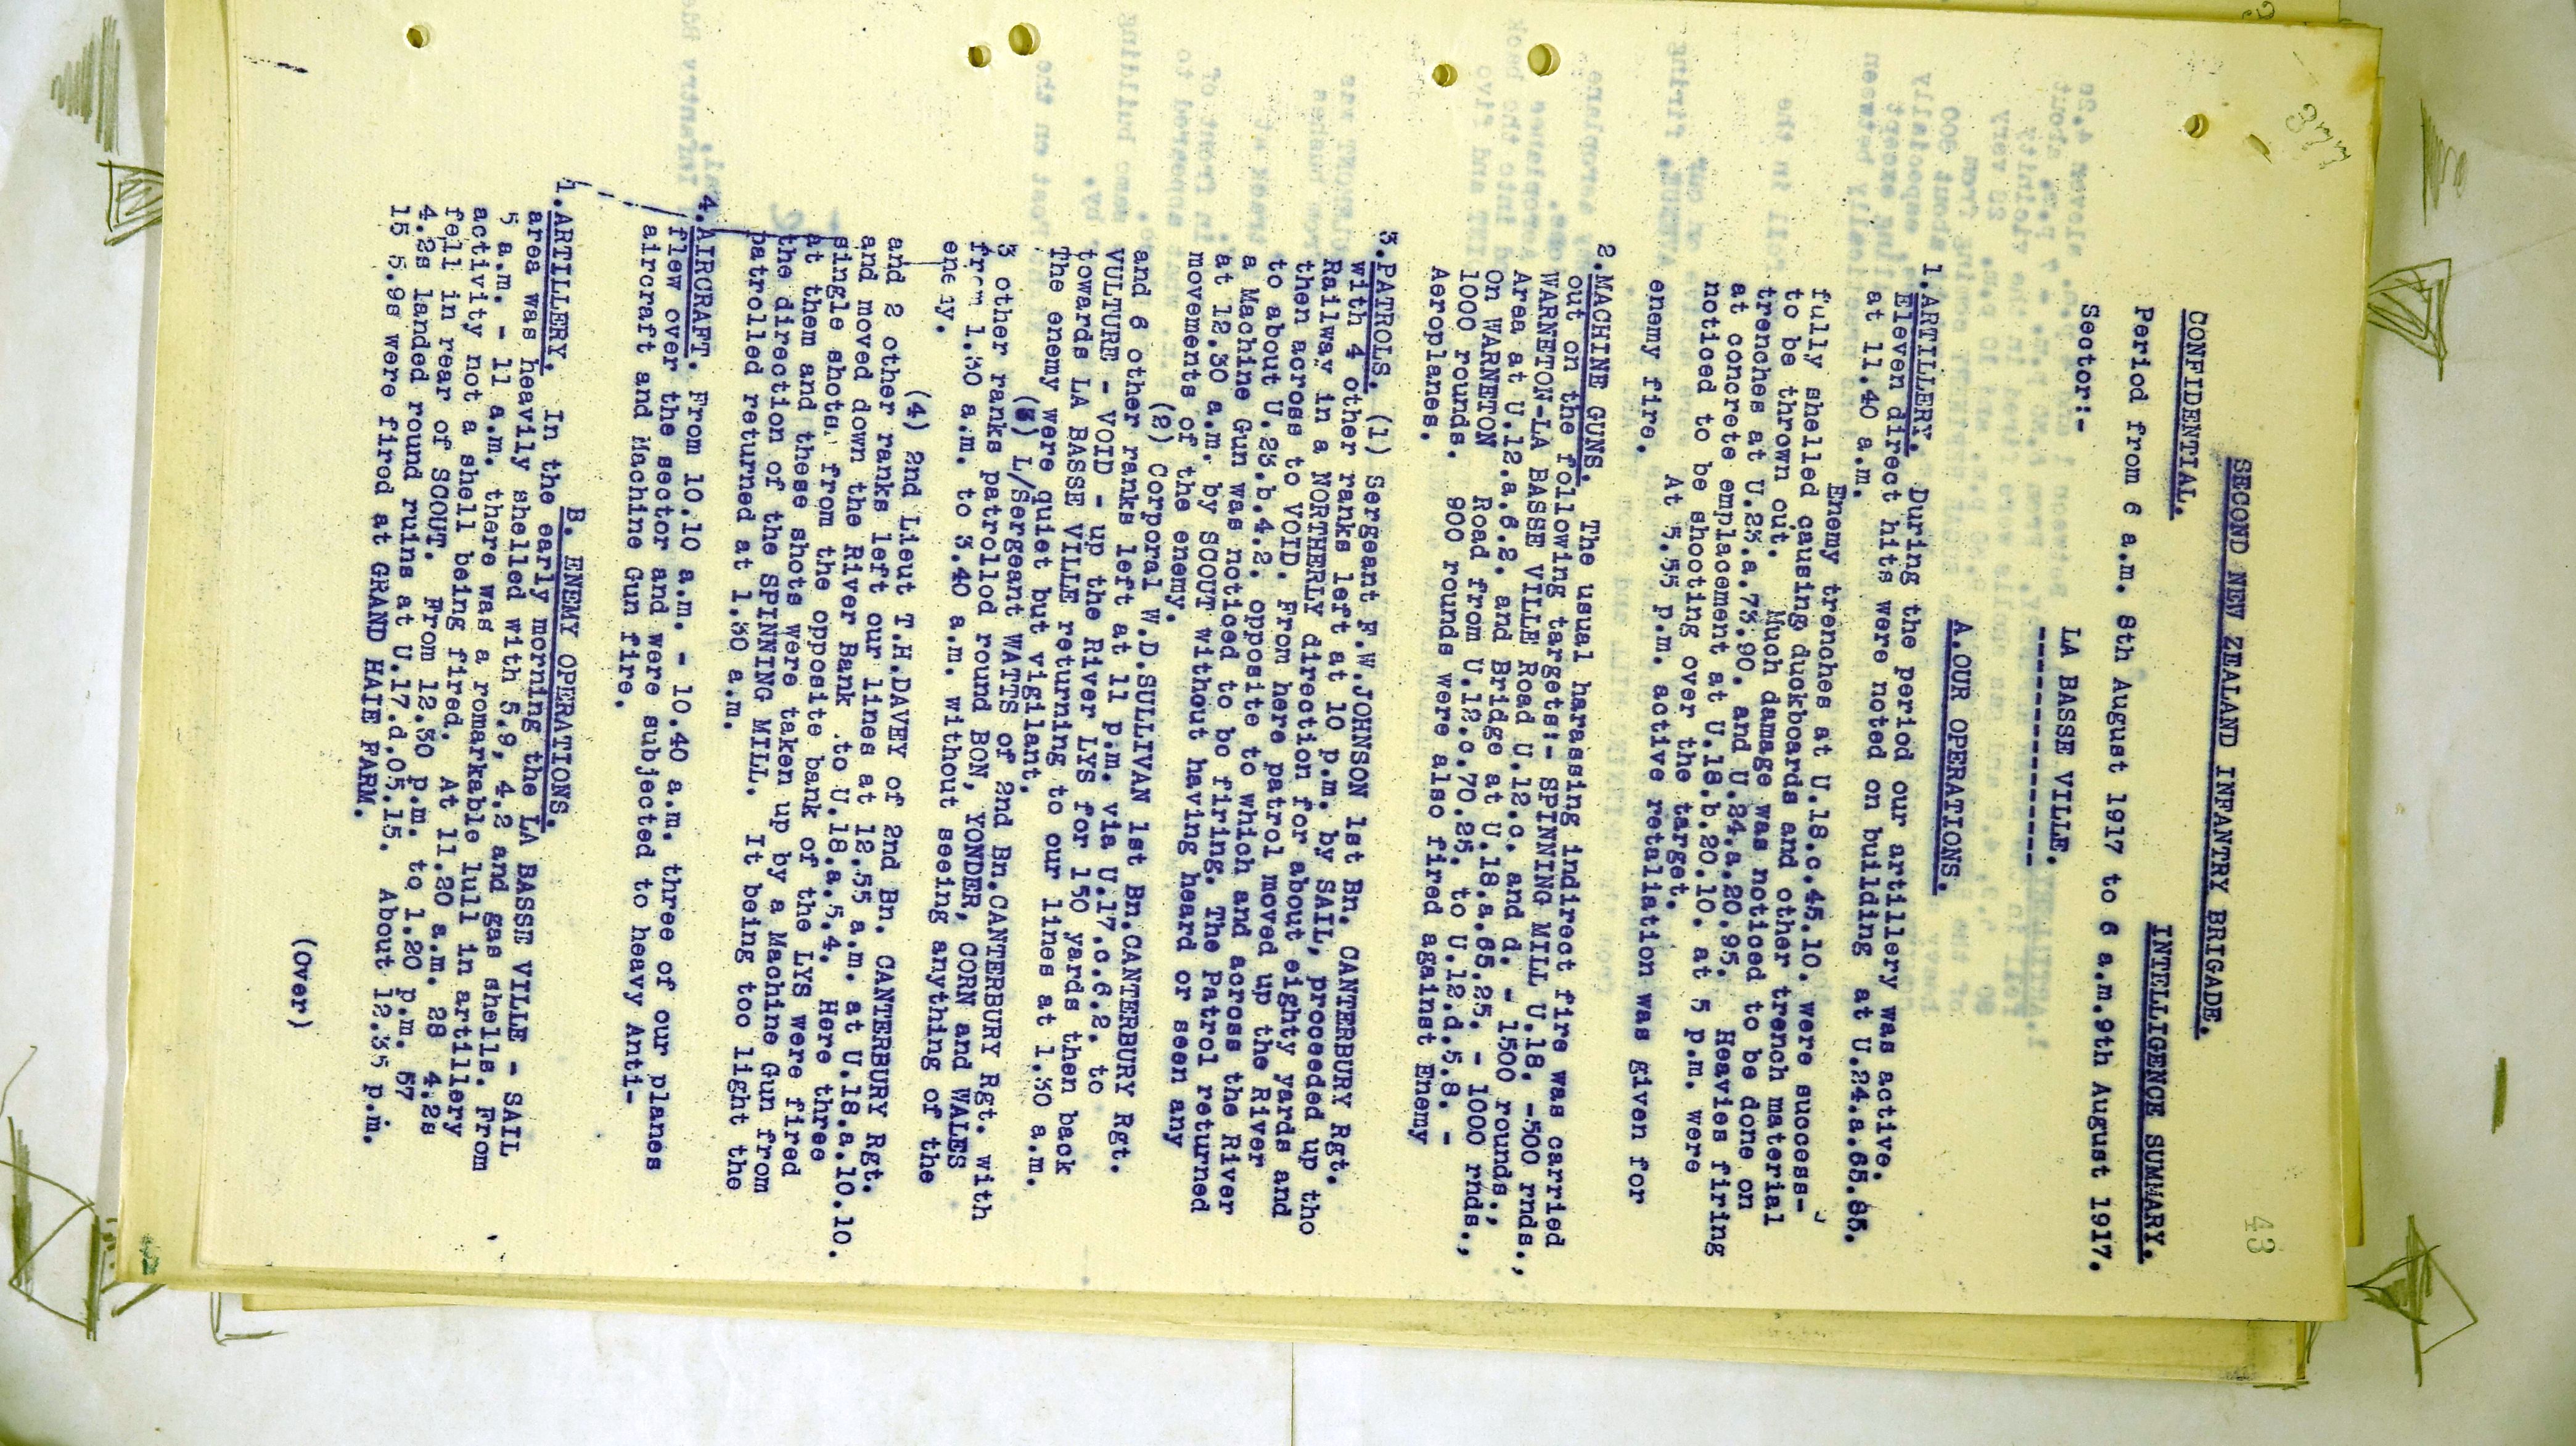 43
SECOND NEW ZEALAND INFANTRY BRIGADE.
CONFIDENTIAL.
INTELLIGENCE SUMMARY.
Period from 6 a.m. 8th August 1917 to 6 a.m.9th August 1917.
Sector:- LA BASSE VILLE.
---------------
A.OUR OPERATIONS.
1.ARTILLERY. During the period our artillery was active.
Eleven direct hits were noted on building at U.24.a.65.85.
at 11.40 a.m.
Enemy trenches at U.18.c.45.10. were success-
fully shelled causing duckboards and other trench material
to be thrown out. Much damage was noticed to be done on
trenches at U.23.a.73.90. and U.24.a.20.95. Heavies firing
at concrete emplacement at U.18.b.20.10. at 5 p.m. were
noticed to be shooting over the target.
At 5.55 p.m. active retaliation was given for
enemy fire.
2.MACHINE GUNS. The usual harassing indirect fire was carried
out on the following targets:- SPINNING MILL U.18. -500 rnds.,
WARNETON-LA BASSE VILLE Road U.12.c. and d. - 1500 rounds.;
Area at U.12.a.6.2. and Bridge at U.18.a.65.25. - 1000 rnds.,
On WARNETON Road from U.12.c.70.25. to U.12.d.5.8. -
1000 rounds. 900 rounds were also fired against Enemy
Aeroplanes.
3.PATROLS. (1) Sergeant F.W.JOHNSON 1st Bn. CANTERBURY Rgt.
with 4 other ranks left at 10 p.m. by SAIL, proceeded up tho
Railway in a NORTHERLY direction for about eighty yards and
then across to VOID. From here patrol moved up the River
to about U.23.b.4.2. opposite to which and across the River
a Machine Gun was noticed to be firing. The Patrol returned
at 12.30 a.m. by SCOUT without having heard or seen any
movements of the enemy.
(2) Corporal W.D.SULLIVAN 1st Bn.CANTERBURY Rgt.
and 6 other ranks left at 11 p.m. via U.17.c.6.2. to
VULTURE - VOID - up the River LYS for 150 yards then back
towards LA BASSE VILLE returning to our lines at 1.30 a.m.
The enemy were quiet but vigilant.
(3) L/Sergeant WATTS of 2nd Bn.CANTERBURY Rgt. with
3 other ranks patrolled round BON, YONDER, CORN and WALES
from 1.30 a.m. to 3.40 a.m. without seeing anything of the
enemy.
(4) 2nd Lieut T.H.DAVEY of 2nd Bn. CANTERBURY Rgt.
and 2 other ranks left our lines at 12.55 a.m. at U.18.a.10.10.
and moved down the River Bank to U.18.a.5.4. Here three
single shots from the opposite bank of the LYS were fired
at them and these shots were taken up by a Machine Gun from
the direction of the SPINNING MILL. It being too light the
patrolled returned at 1.30 a.m.
4.AIRCRAFT. From 10.10 a.m. - 10.40 a.m. three of our planes
flew over the sector and were subjected to heavy Anti-
aircraft and Machine Gun fire.
B. ENEMY OPERATIONS.
1.ARTILLERY. In the early morning the LA BASSE VILLE - SAIL
area was heavily shelled with 5.9, 4.2 and gas shells. From
5 a.m. - 11 a.m. there was a romarkable lull in artillery
activity not a shell being fired. At 11.20 a.m. 28 4.2s
fell in rear of SCOUT. From 12.30 p.m. to 1.20 p.m. 57
4.2s landed round ruins at U.17.d.05.15. About 12.35 p.m.
15 5.9s were fired at GRAND HAIE FARM.
(Over)